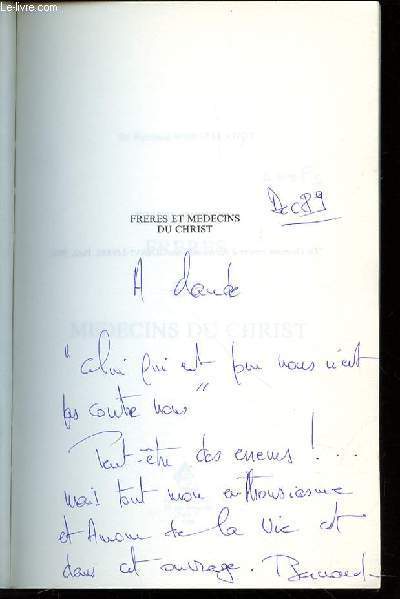 Le-livre.com
Dec 89
FRERES ET MEDECINS
DU CHRIST
A Claude
"Celui qui est pour nous n'est
pas contre nous"
Peut-être des erreurs ! ...
mais tout mon enthousiasme
et Amour de la Vie est
dans cet ouvrage. Bernard
MEDECINS DU CHRIST